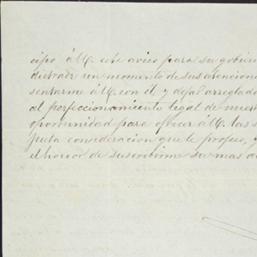 cipo á U. este aviso para su gobier
distraér un momento de sus atencione
sentarme á U. con él y dejar arreglado
al perfeccionamiento legal de nuest
oportunidad para ofrecer á U. las s
justa consideracion que le profeso, y
el honor de suscribirme su mas a